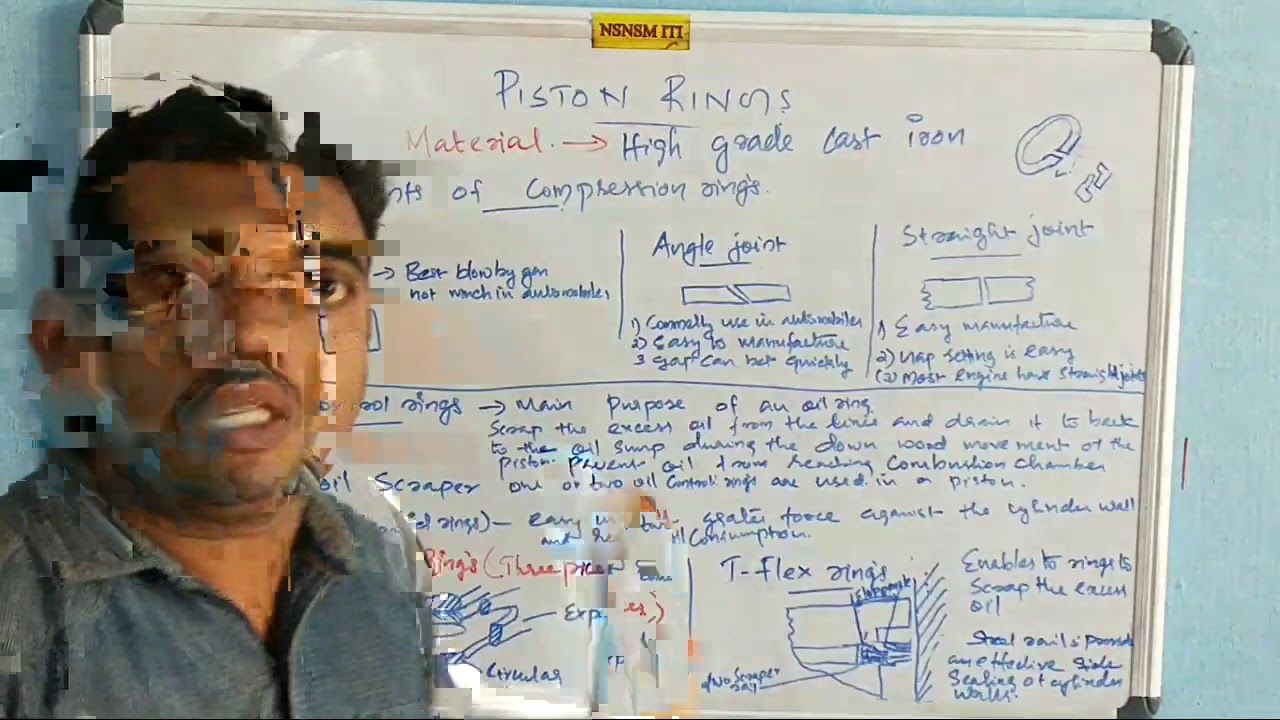 NSNSM ITI
PISTON RINGS
Material. → High grade cast iron
nts of Compression rings.
→ Best blow by gan
not much in automobiles
Angle joint
1) Commolly use in automobiles
2) Easy to manufacture
3 Gap can bet quickly
Straight joint
1) Easy manufacture
2) Gap setting is easy
(3) Most engine have straight joint
control rings → Main purpose of an oil ring
Scrap the excess oil from the liner and drain it to back
to the oil sump during the down word movement of the
piston. Prevent oil from reaching Combustion chamber
oil Scraper one or two oil Control rings are used in a piston.
rings) - easy grater force against the cylinder wall
and oil Consumption.
Rings (Three piece
Circular
T-Flex rings
two scraper
rail
Enables to rings to
Scrap the excess
oil
Steel rails provide
an effective side
Sealing of cylinder
walls.